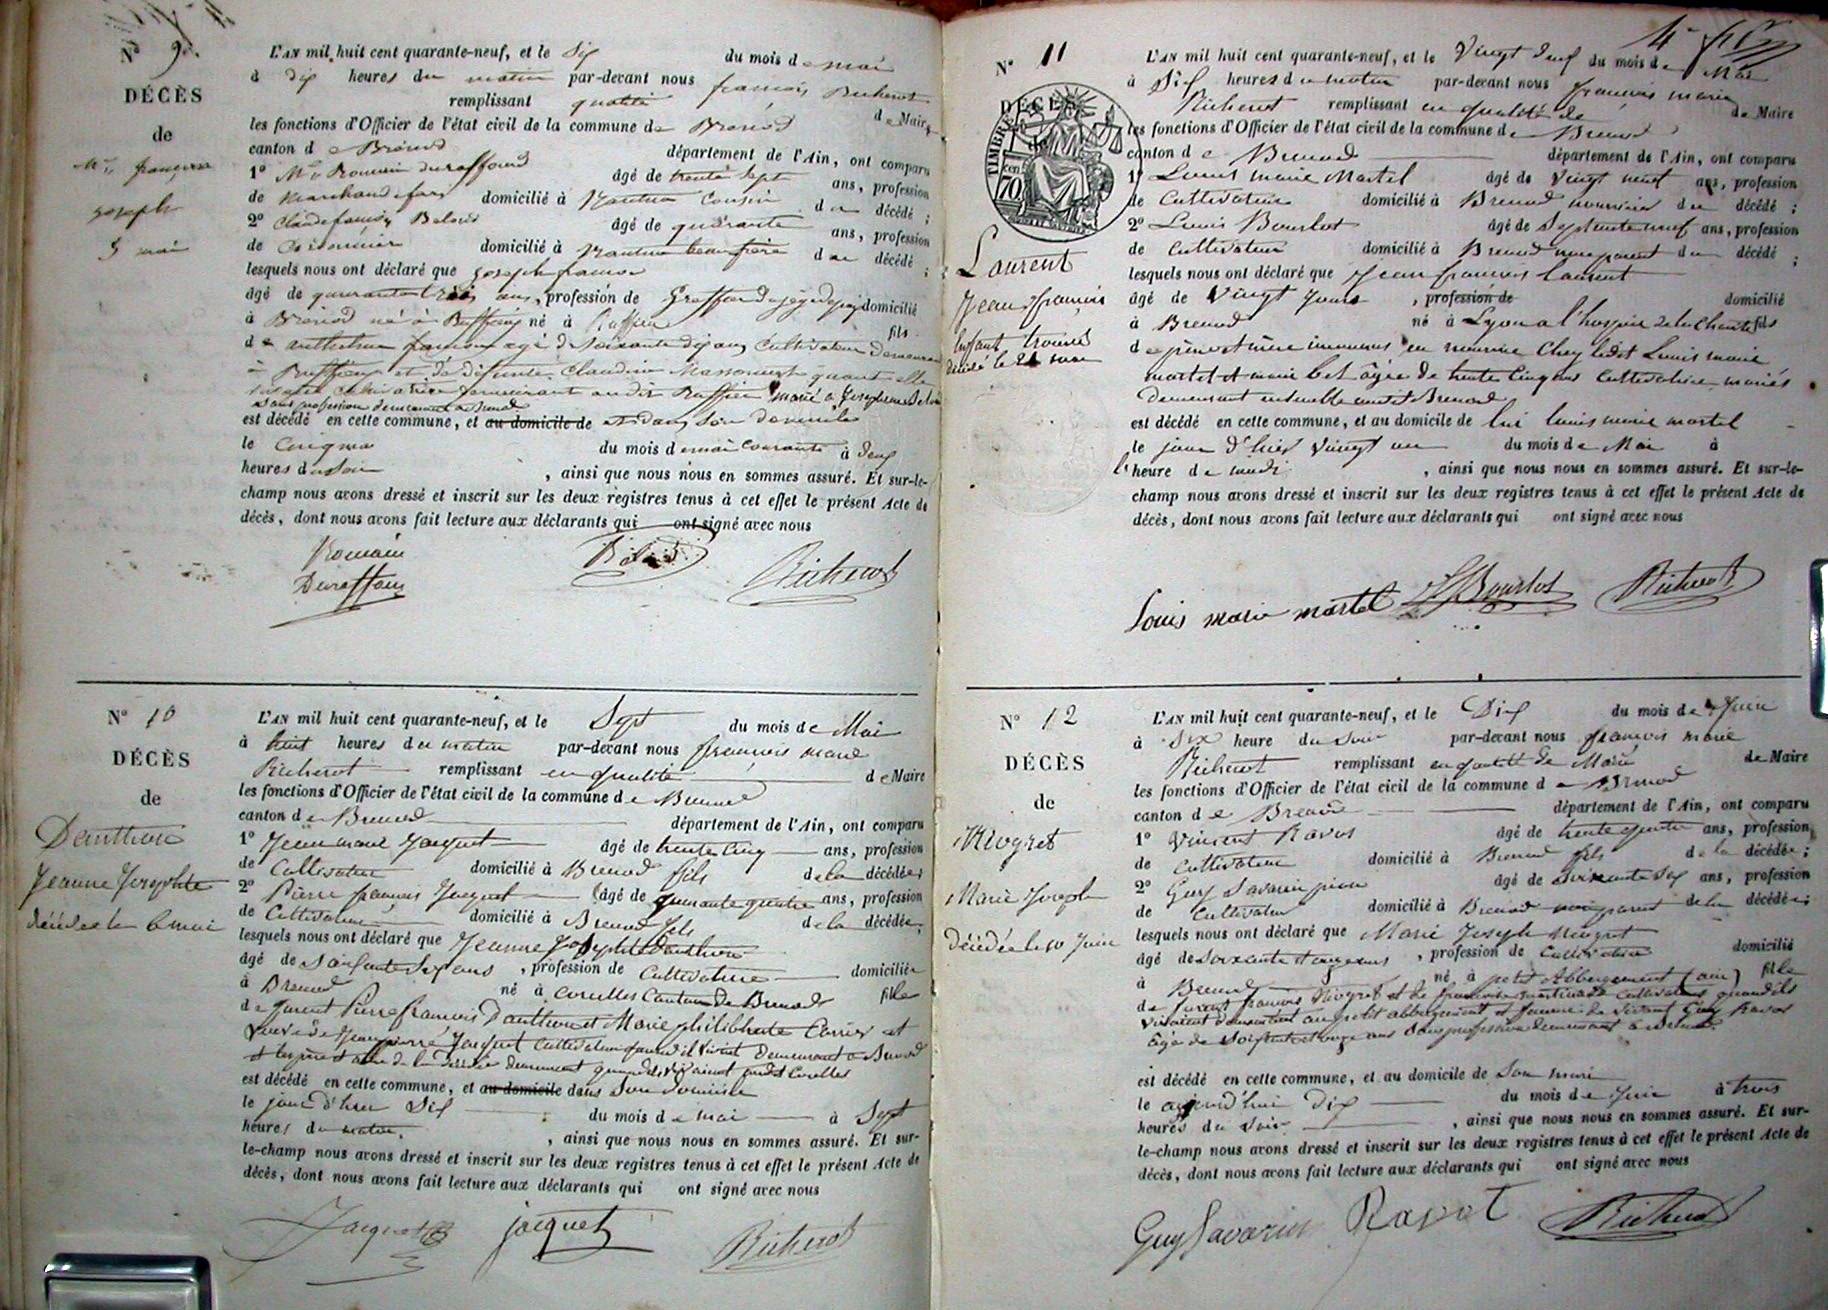 N° 9.
DÉCÈS
de
joseph
5 mai
L'AN mil huit cent quarante-neuf, et le Six du mois de mai
à dix heures du matin par-devant nous françois Richerot
remplissant qualité de Maire
les fonctions d'Officier de l'état civil de la commune de Brénod
canton de Brénod département de l'Ain, ont comparu
1° Mr Romain Duraffourd âgé de trente sept ans, profession
de Marchand domicilié à Nantua Cousin du décédé ;
2° Claude françois âgé de quarante ans, profession
de Cordonnier domicilié à Nantua beau frère du décédé ;
lesquels nous ont déclaré que joseph
âgé de quarante trois ans, profession de Greffier de domicilié
à Brénod né à Ruffieu né à Ruffieu fils
de agé de Soixante dix ans Cultivateur
à Ruffieu et de défunte Claudine quant elle
demeurant au dit Ruffieu marié à
sans profession demeurant à Brenod
est décédé en cette commune, et au domicile de et dans son domicile
le cinq du mois de mai courant à deux
heures du soir , ainsi que nous nous en sommes assuré. Et sur-le-
champ nous avons dressé et inscrit sur les deux registres tenus à cet effet le présent Acte de
décès, dont nous avons fait lecture aux déclarants qui ont signé avec nous
Romain
Duraffour
Richerot
N° 10
DÉCÈS
de
Danthon
Jeanne Josephte
décédée le 6 mai
L'AN mil huit cent quarante-neuf, et le Sept du mois de Mai
à huit heures du matin par-devant nous françois marie
Richerot remplissant en qualité de Maire
les fonctions d'Officier de l'état civil de la commune de Brenod
canton de Brenod département de l'Ain, ont comparu
1° Jean marie Jacquet âgé de trente cinq ans, profession
de Cultivateur domicilié à Brenod fils de la décédée ;
2° Pierre françois Jacquet âgé de quarante quatre ans, profession
de Cultivateur domicilié à Brenod fils de la décédée ;
lesquels nous ont déclaré que Jeanne Josephte Danthon
âgé de Soixante Six ans , profession de Cultivatrice domiciliée
à Brenod né à Corcelles Canton de Brenod fille
de Pierre françois Danthon et Marie philiberte Carrier et
veuve de Jean pierre Jacquet Cultivateur quand il vivait demeurant à Brenod
et les père et mère de la décédée demeurant quand ils vivaient audit Corcelles
est décédé en cette commune, et au domicile dans Son domicile
le jour d'hier Six du mois de mai à Sept
heures du matin , ainsi que nous nous en sommes assuré. Et sur-
le-champ nous avons dressé et inscrit sur les deux registres tenus à cet effet le présent Acte de
décès, dont nous avons fait lecture aux déclarants qui ont signé avec nous
Jacquet jacquet Richerot
N° 11
DÉCÈS
TIMBRE
70
Laurent
Jean françois
Enfant trouvé
décédé le 21 mai
L'AN mil huit cent quarante-neuf, et le Vingt deux du mois de Mai
à Six heures du matin par-devant nous françois marie
Richerot remplissant en qualité de de Maire
les fonctions d'Officier de l'état civil de la commune de Brenod
canton de Brenod département de l'Ain, ont comparu
1° Louis marie Martel âgé de vingt neuf ans, profession
de Cultivateur domicilié à Brenod nourricier du décédé ;
2° Louis Bourlot âgé de Septante neuf ans, profession
de Cultivateur domicilié à Brenod non parent du décédé ;
lesquels nous ont déclaré que Jean françois Laurent
âgé de Vingt Jours , profession de domicilié
à Brenod né à Lyon a l'hospice de la Charité fils
de père et mère inconnus en nourrice Chez ledit Louis marie
martel et marie agée de trente Cinq ans Cultivatrice mariés
demeurant ensemble audit Brenod
est décédé en cette commune, et au domicile de lui louis marie martel
le jour d'hier vingt un du mois de Mai à
l'heure de midi , ainsi que nous nous en sommes assuré. Et sur-le-
champ nous avons dressé et inscrit sur les deux registres tenus à cet effet le présent Acte de
décès, dont nous avons fait lecture aux déclarants qui ont signé avec nous
Louis marie martel L Bourlot Richerot
N° 12
DÉCÈS
de
Nivgret
Marie Joseph
décédée le 10 Juin
L'AN mil huit cent quarante-neuf, et le Dix du mois de Juin
à Six heure du Soir par-devant nous françois marie
Richerot remplissant en qualité de Maire de Maire
les fonctions d'Officier de l'état civil de la commune de Brenod
canton de Brenod département de l'Ain, ont comparu
1° Vincent Ravot âgé de trente quatre ans, profession
de Cultivateur domicilié à Brenod fils de la décédée ;
2° Guy Savarin âgé de Soixante Six ans, profession
de Cultivateur domicilié à Brenod non parent de la décédée ;
lesquels nous ont déclaré que Marie Joseph Nivgret
âgé de soixante et onze ans , profession de Cultivatrice domicilié
à Brenod né à petit Abbergement (ain) fille
de françois Nivgret et de françoise Cultivateurs quand ils
vivaient demeurant au petit abbergement et femme de Vincent Guy Ravot
âgé de Soixante et onze ans Sans profession demeurant à Brenod
est décédé en cette commune, et au domicile de Son mari
le aujourd'hui dix du mois de Juin à trois
heures du Soir , ainsi que nous nous en sommes assuré. Et sur-
le-champ nous avons dressé et inscrit sur les deux registres tenus à cet effet le présent Acte de
décès, dont nous avons fait lecture aux déclarants qui ont signé avec nous
Guy Savarin Ravot Richerot